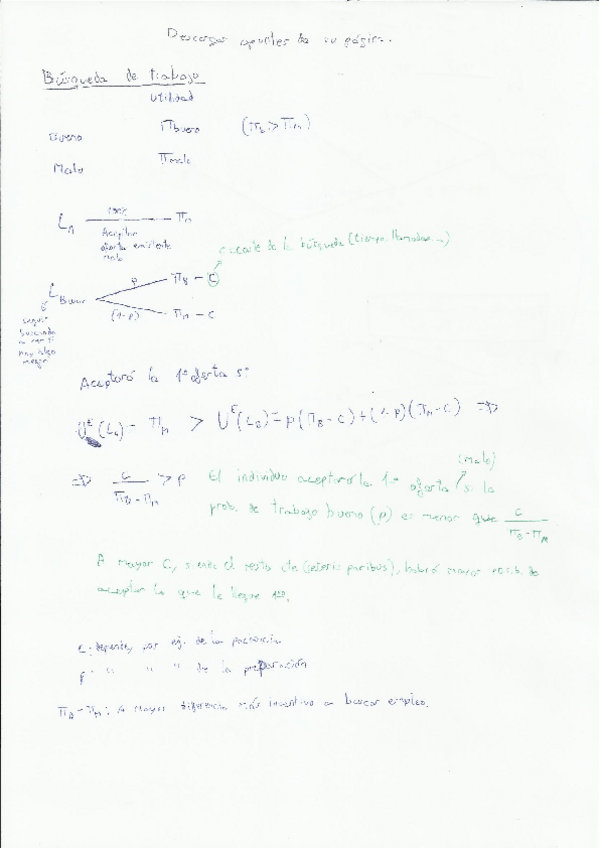 Descargar apuntes de su página.
Búsqueda de trabajo
Utilidad
Bueno Πbueno (Π_B > Π_M)
Malo Πmalo
L_A 100% Π_M
Aceptar
oferta existente
malo
c coste de la búsqueda (tiempo, llamadas...)
L Buscar p Π_B - C
(1-p) Π_M - C
seguir
buscando
a ver si
hay algo
mejor
Aceptaré la 1ª oferta si:
U^E(L_A) = Π_M > U^E(L_B) = p(Π_B - C) + (1-p)(Π_M - C) ⇒
⇒ C / (Π_B - Π_M) > p
El individuo aceptará la 1ª oferta (malo) si la
prob. de trabajo bueno (p) es menor que C / (Π_B - Π_M)
A mayor C, siendo el resto cte (ceteris paribus), habrá mayor posib. de
aceptar lo que le llegue 1º.
C: depende, por ej. de la paciencia
p " " " de la preparación
Π_B - Π_M: A mayor diferencia más incentivo a buscar empleo.